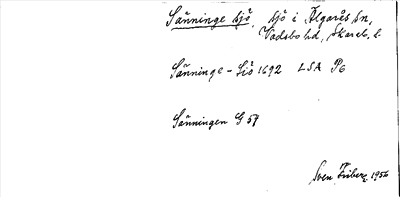 Sänninge sjö, sjö i Älgarås sn,
Vadsbo hd, Skarab. l.
Sänninge-Siö 1692 LSA P6
Sänningen G 57
Sven Friberg 1956